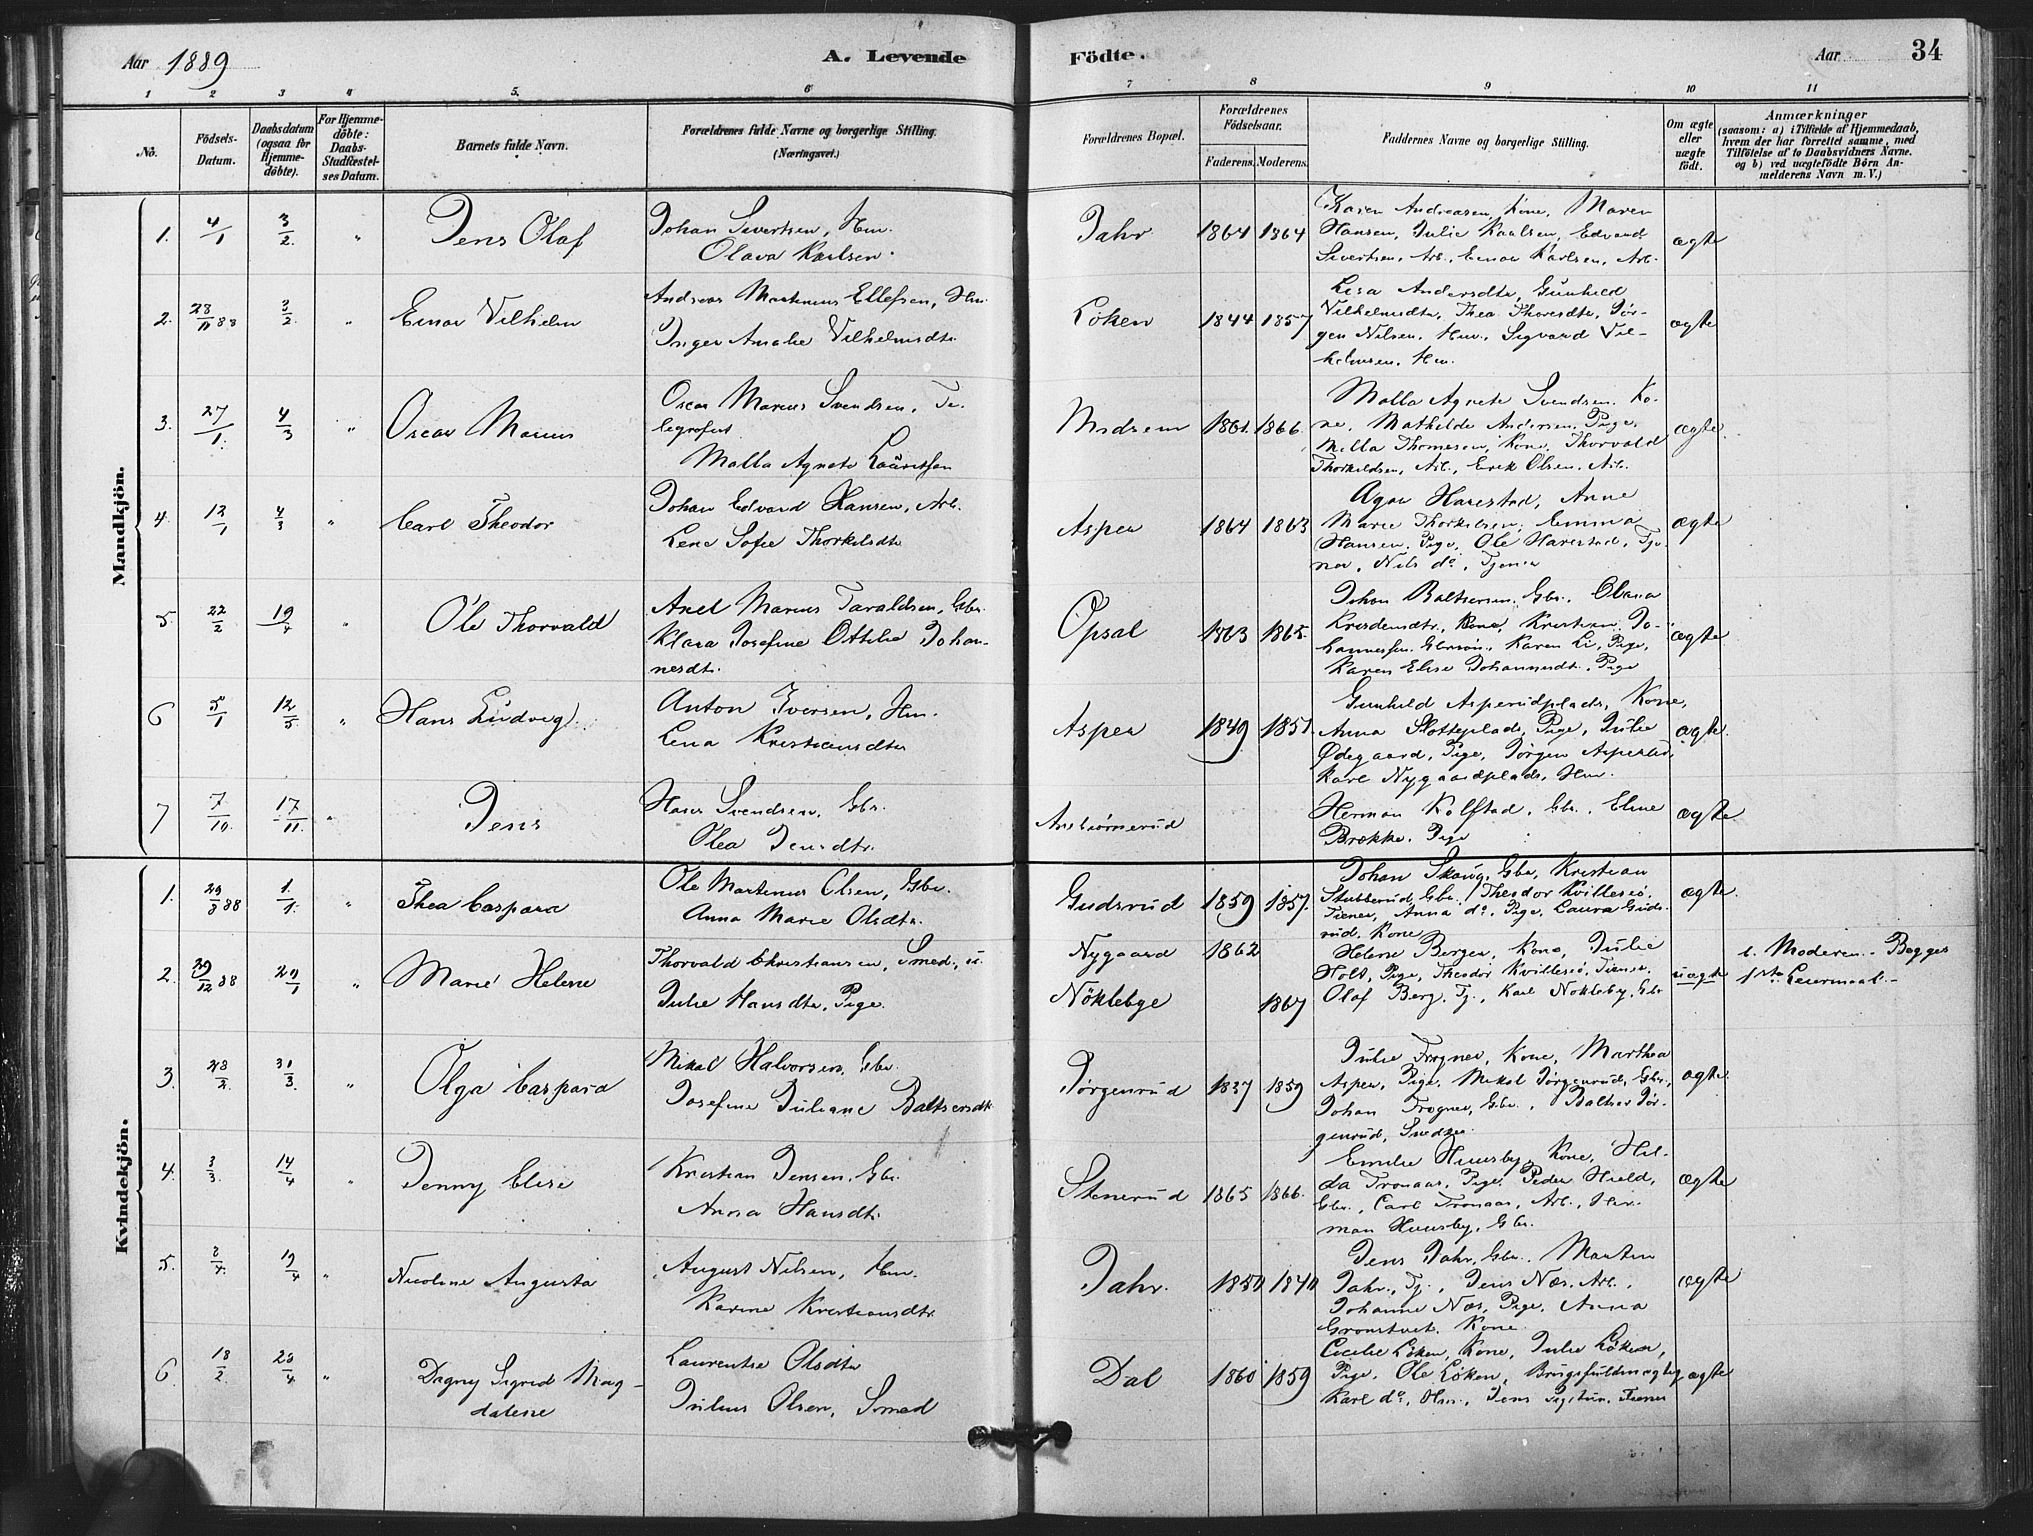 Aar 1889 A. Levende Födte. Aar 34
1 2 3 4 5. 6 7 8 9 10 11
No.
Födsels-Datum.
Daabsdatum (ogsaa for Hjemme-döbte).
For Hjemme-döbte: Daabs-Stadfæstel-ses Datum.
Barnets fulde Navn.
Forældrenes fulde Navne og borgerlige Stilling.
(Næringsvei.)
Forældrenes Bopæl.
Forældrenes Födselsaar.
Faderens. Moderens.
Faddernes Navne og borgerlige Stilling.
Om ægte eller uægte födt.
Anmærkninger
(saasom: a) i Tilfælde af Hjemmedaab,
hvem der har forrettet samme, med
Tilföielse af to Daabsvidners Navne.
og b) ved uægtefödte Börn An-
melderens Navn m. V.)
Mandkjön.
1. 4/1 3/2 " Jens Olaf
Johan Sivertsen, Hm.
Olava Karlsen.
Jahr 1864 1864
Karen Andreasen, Kone, Maren
Hansen, Julie Karlsen, Edvard
Sivertsen, Arb., Einar Karlsen, Arb.
ægte
2. 28/11 88 3/2 " Einar Vilhelm
Andreas Martinius Ellefsen, Hm.
Inger Amalie Vilhelmsdtr.
Löken 1844 1857
Lisa Andersdtr, Gunhild
Vilhelmsdtr, Thea Thoresdtr, Jör-
gen Nilsen, Hm., Sigvard Vil-
helmsen, Hm.
ægte
3. 27/1. 4/3 " Oscar Marius
Oscar Marius Svendsen, Te-
legrafist
Malla Agnete Lauritsen
Midsem 1861. 1866.
Malla Agnete Svendsen, Ko-
ne, Mathilde Andersen, Pige,
Milla Thomesen, Kone, Thorvald
Thorkildsen, Arb., Erik Olsen, Arb.
ægte
4. 12/1 4/3 " Carl Theodor
Johan Edvard Hansen, Arb.
Lene Sofie Thorkilsdtr
Aspea 1864 1863
Harestad, Anne
Marie Thorkilsen, Emma
Hansen, Pige, Ole Harestad, Tje-
ner, Nils do, Tjener
ægte
5. 22/2 19/4 " Ole Thorvald
Axel Marius Taraldsen, Gbr.
Klara Josefine Ottilie Johan-
nesdtr.
Opsal 1863 1865
Johan Baltsersen, Gbr., Olava
Kristensdtr., Kone, Kristian Jo-
hannessen, Gbrsön, Karen Li, Pige,
Karen Elise Johannesdt. Pige
ægte
6 5/1 12/5. " Hans Ludvig
Anton Iversen, Hm.
Lena Kristiansdtr
Aspea 1849 1851.
Gunhild Asperudplads, Kone,
Anna Slotteplads, Pige, Julie
Ødegaard, Pige, Jörgen Asperud,
Karl Nygaardplads, Hm.
ægte
7 7/10. 17/11. " Jens
Hans Svendsen, Gbr.
Olea Jensdtr.
Herman Kolstad, Gbr., Eline
Brække, Pige
ægte
Kvindekjön.
1. 29/8 88 1./1. " Thea Caspara
Ole Martinius Olsen, Gbr.
Anna Marie Olsdtr.
Gudsrud 1859 1857.
Johan Skaug, Gbr, Kristian
Stubberud, Gbr., Theodor Kvillesjö,
Tjener, Anna do, Pige, Laura Guds-
rud, Kone
ægte
2. 29/12 88 20/1 " Marie Helene
Thorvald Christiansen, Smed, u.
Julie Hansdtr, Pige
Nygaard 1862
Nöklebye 1867
Helene Bergen, Kone, Julie
Holt, Pige, Theodor Kvillesjö, Tjener,
Olaf Berg, Tj., Karl Nökleby, Gbr
uægte
t. Moderen. Begges
1ste Leiermaal.
3. 23/2. 31/3. " Olga Caspara
Mikal Halvorsen, Gbr.
Josefine Juliane Baltsersdtr.
Jörgenrud 1837 1859
Julie Frogner, Kone, Marthea
Aspea, Pige, Mikal Jörgenrud, Gbr.,
Johan Frogner, Gbr., Baltser Jör-
genrud,
ægte
4. 3/3. 14/4 " Jenny Elise
Kristian Jensen, Gbr.
Anna Hansdtr.
Stenerud 1865 1866.
Emilie Huusby, Kone, Hil-
da Tronaas, Pige, Peder
Gbr., Carl Tronaas, Arb., Her-
man Huusby, Gbr.
ægte
5. 2/4. 19/4 " Nicoline Augusta
August Nilsen, Hm.
Karine Kristiansdtr.
Jahr.
Jens Jahr, Gbr. Martin
Jahr, Tj., Jens Næs, Arb.,
Johanne Næs, Pige, Anna
Kone
ægte
6. 18/2. 28/4 " Dagny Sigrid Mag-
dalene
Laurentse Olsdtr
Julius Olsen, Smed
Dal 1860 1859
Cecilie Löken, Kone, Julie Löken,
Pige, Ole Löken, Brugsfuldmægtig
Karl do, Hm., Jens Tjener
ægte